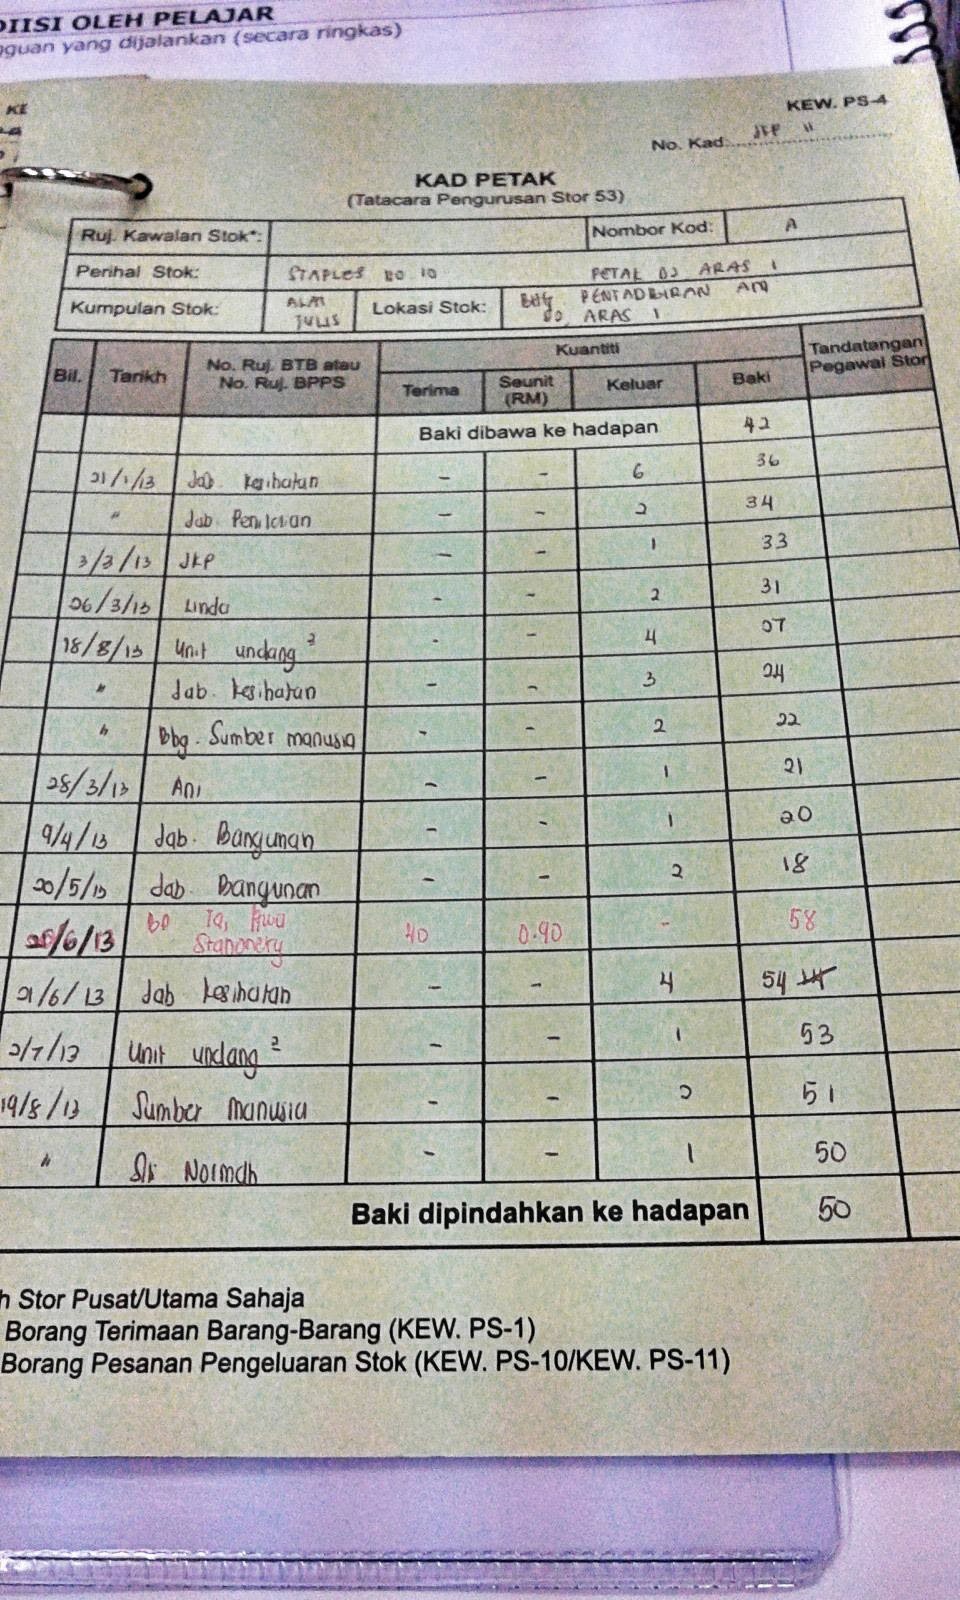 DIISI OLEH PELAJAR
gguan yang dijalankan (secara ringkas)
KE
KEW. PS-4
No. Kad: JKP 11
KAD PETAK
(Tatacara Pengurusan Stor 53)
Ruj. Kawalan Stok*: Nombor Kod: A
Perihal Stok: STAPLES NO 10 PETAK 02 ARAS 1
Kumpulan Stok: ALAT TULIS Lokasi Stok: BHG PENTADBIRAN AM 02, ARAS 1
Bil. Tarikh No. Ruj. BTB atau No. Ruj. BPPS Kuantiti Tandatangan Pegawai Stor
Terima Seunit (RM) Keluar Baki
Baki dibawa ke hadapan 42
21/1/13 Jab. Kesihatan - - 6 36
" Jab. Penilaian - - 2 34
3/3/13 JKP - - 1 33
26/3/13 Linda - - 2 31
18/8/13 Unit undang 2 - - 4 27
" Jab. Kesihatan - - 3 24
" Bhg. Sumber manusia - - 2 22
28/3/13 Ani - - 1 21
9/4/13 Jab. Bangunan - - 1 20
20/5/13 Jab. Bangunan - - 2 18
/6/13 Stationery 40 0.90 - 58
21/6/13 Jab Kesihatan - - 4 54
2/7/13 Unit undang 2 - - 1 53
19/8/13 Sumber Manusia - - 2 51
" Normah - - 1 50
Baki dipindahkan ke hadapan 50
h Stor Pusat/Utama Sahaja
Borang Terimaan Barang-Barang (KEW. PS-1)
Borang Pesanan Pengeluaran Stok (KEW. PS-10/KEW. PS-11)